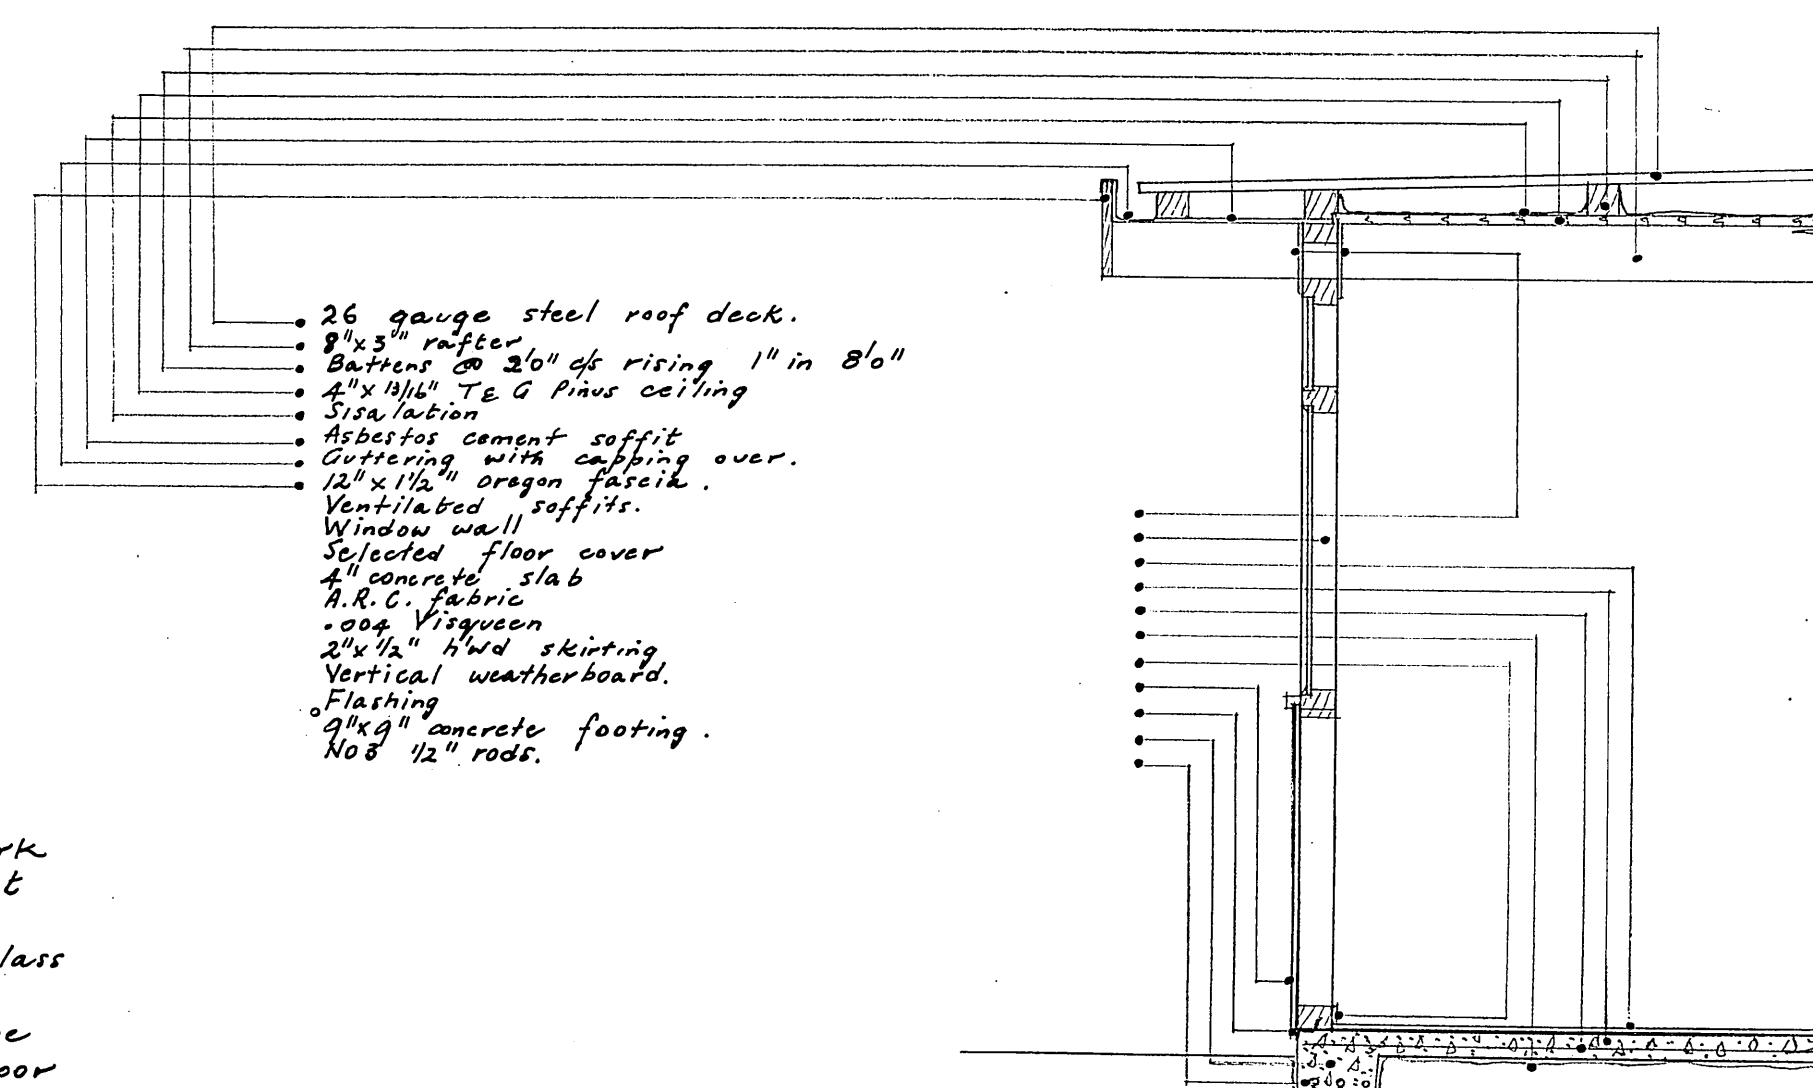 26 gauge steel roof deck.
8"x3" rafter
Battens @ 2'0" c/s rising 1" in 8'0"
4"x 13/16" T & G Pinus ceiling
Sisalation
Asbestos cement soffit
Guttering with capping over.
12"x 1 1/2" oregon fascia.
Ventilated soffits.
Window wall
Selected floor cover
4" concrete slab
A.R.C. fabric
.004 Visqueen
2"x 1/2" h'wd skirting
Vertical weatherboard.
Flashing
9"x9" concrete footing.
No3 1/2" rods.
rk
t
lass
e
oor